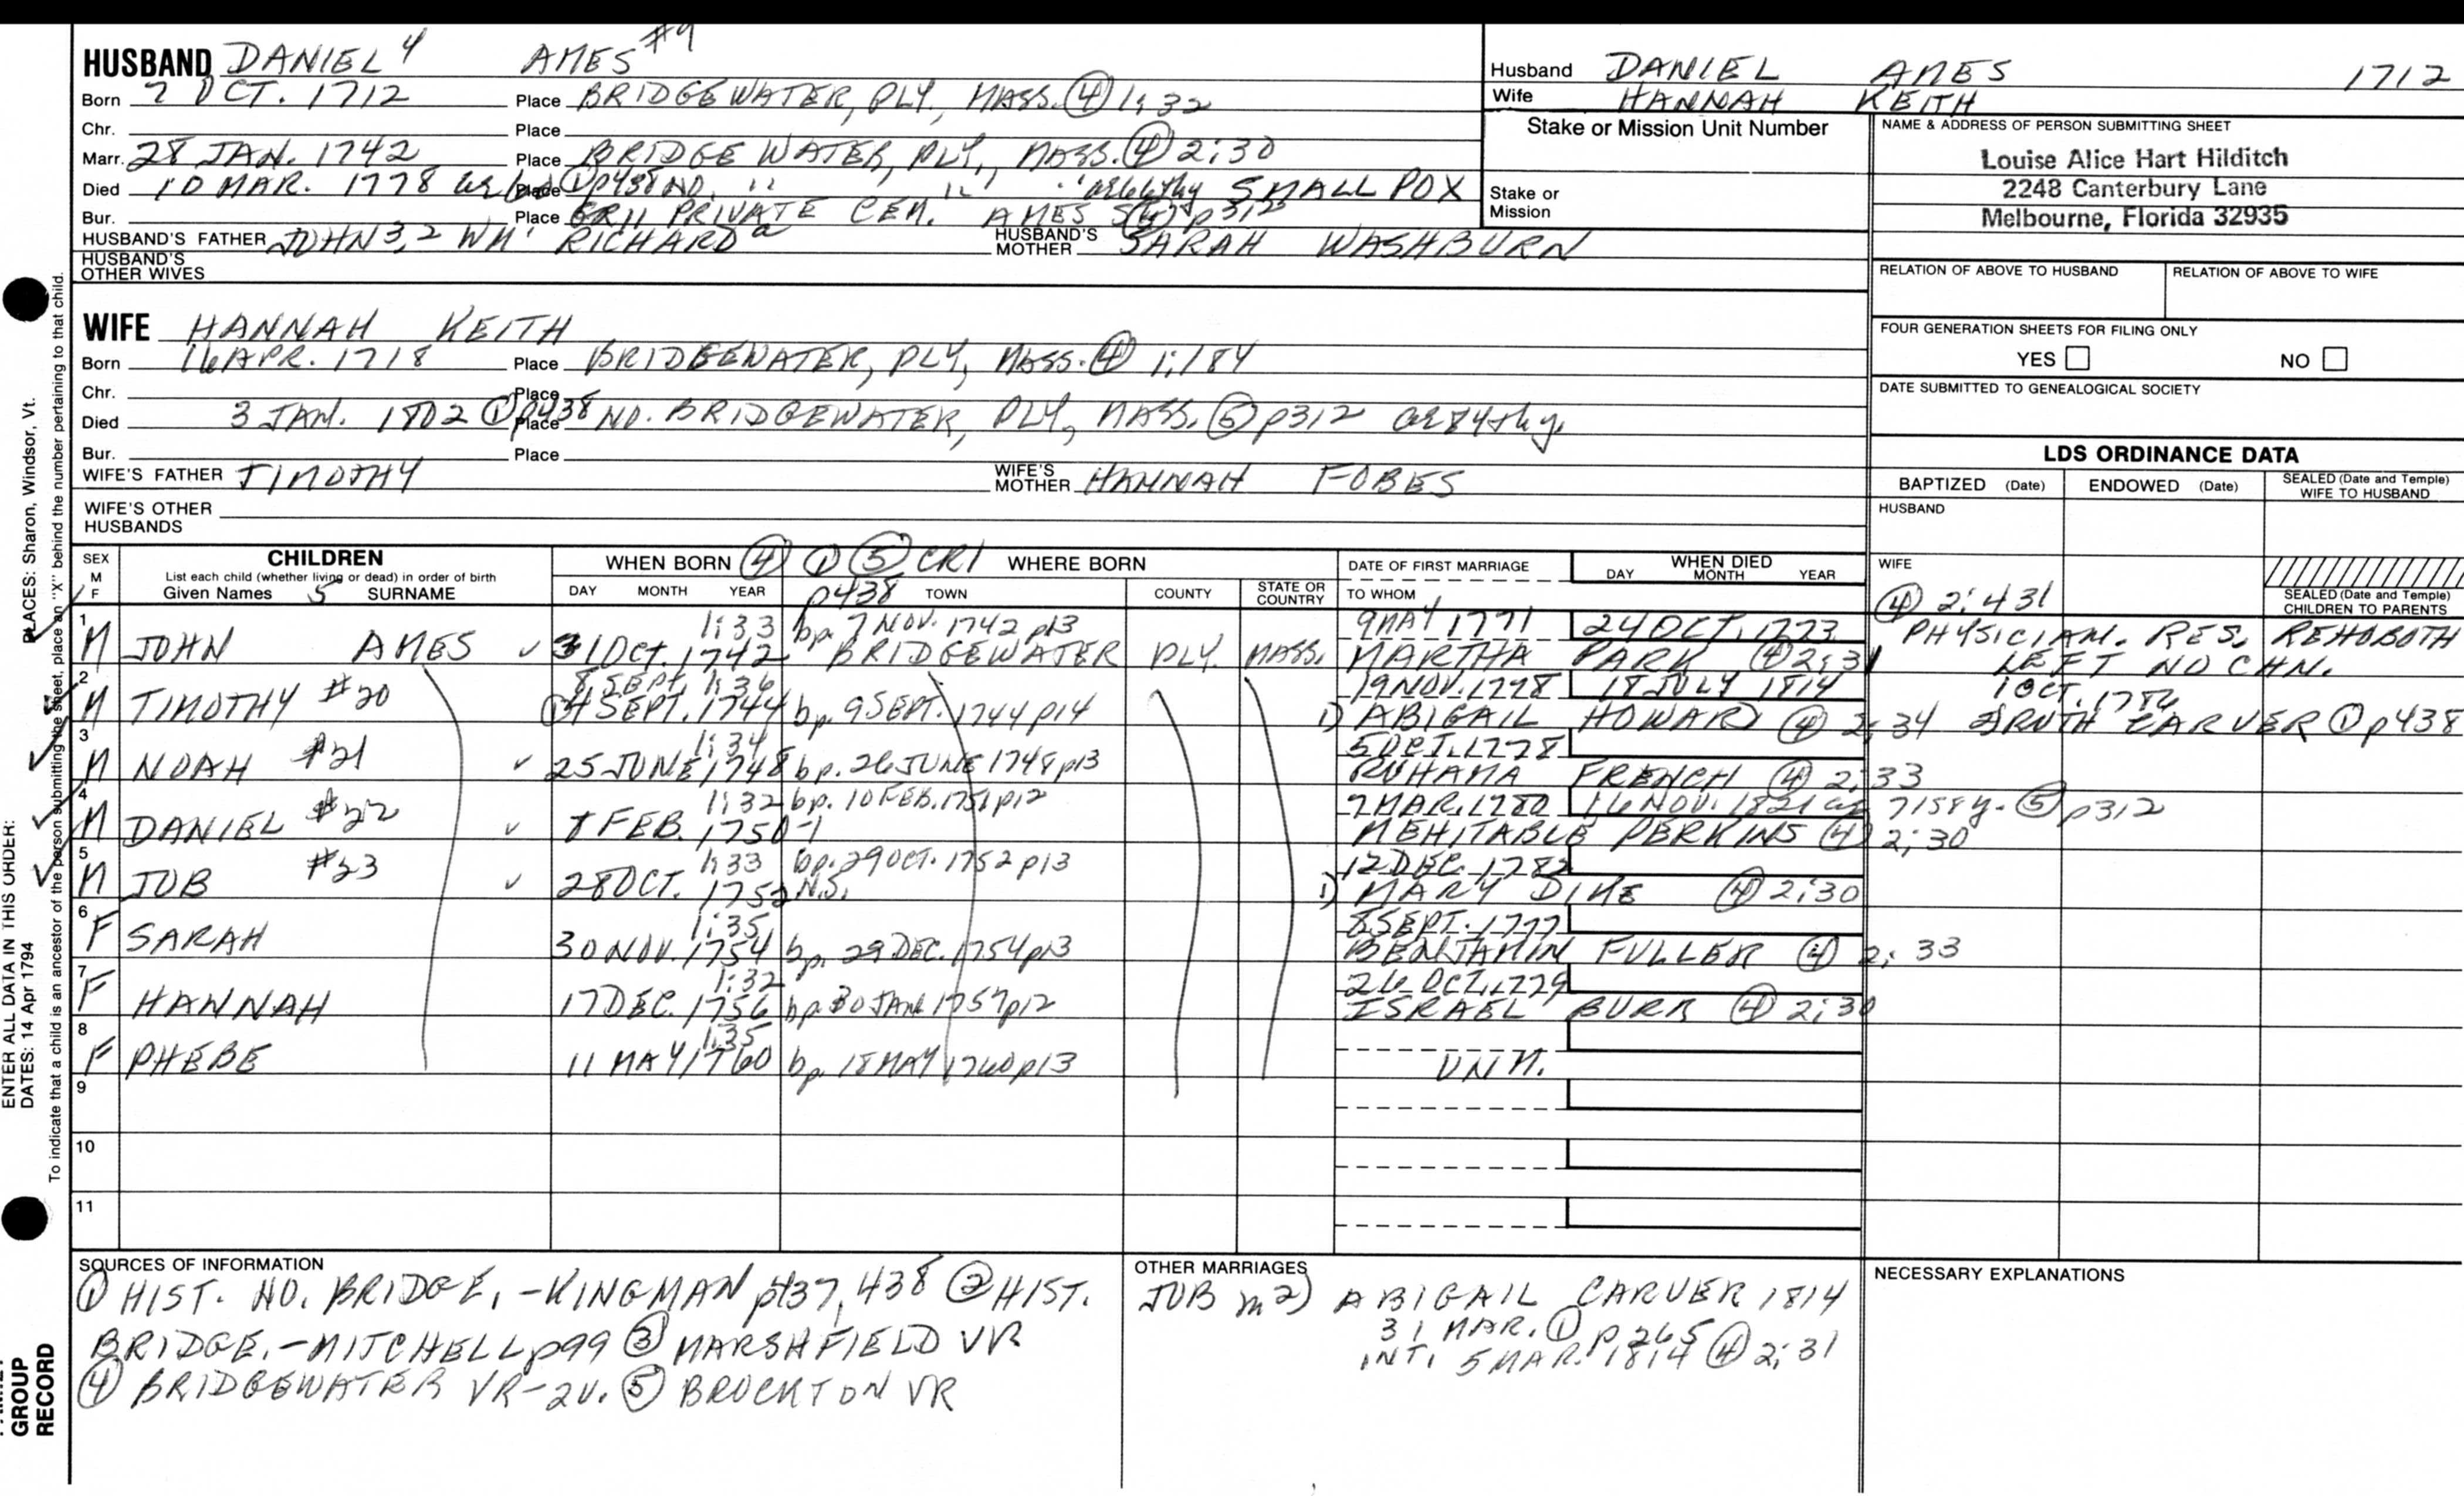 HUSBAND DANIEL 4 AMES #9
Born 7 OCT. 1712 Place BRIDGEWATER, PLY. MASS. ④ 1;32
Chr. Place
Marr. 28 JAN. 1742 Place BRIDGEWATER, PLY., MASS. ④ 2;30
Died 10 MAR. 1778 Place ① p438 NO. " " " SMALL POX
Bur. Place GR11 PRIVATE CEM. AMES p312
HUSBAND'S FATHER JOHN 3, 2 WM' RICHARD a HUSBAND'S MOTHER SARAH WASHBURN
HUSBAND'S OTHER WIVES
WIFE HANNAH KEITH
Born 16 APR. 1718 Place BRIDGEWATER, PLY, MASS. ④ 1;184
Chr. Place
Died 3 JAN. 1802 ① p438 Place NO. BRIDGEWATER, PLY, MASS. ⑤ p312 ae 84thy.
Bur. Place
WIFE'S FATHER TIMOTHY WIFE'S MOTHER HANNAH FOBES
WIFE'S OTHER HUSBANDS
Husband DANIEL AMES 1712
Wife HANNAH KEITH
Stake or Mission Unit Number
Stake or Mission
NAME & ADDRESS OF PERSON SUBMITTING SHEET
Louise Alice Hart Hilditch
2248 Canterbury Lane
Melbourne, Florida 32935
RELATION OF ABOVE TO HUSBAND RELATION OF ABOVE TO WIFE
FOUR GENERATION SHEETS FOR FILING ONLY
YES NO
DATE SUBMITTED TO GENEALOGICAL SOCIETY
LDS ORDINANCE DATA
BAPTIZED (Date) ENDOWED (Date) SEALED (Date and Temple) WIFE TO HUSBAND
HUSBAND
WIFE
④ 2;431
SEALED (Date and Temple) CHILDREN TO PARENTS
SEX M F
CHILDREN
List each child (whether living or dead) in order of birth
Given Names 5 SURNAME
WHEN BORN ④ ① ⑤ CR1 WHERE BORN
DAY MONTH YEAR p438 TOWN COUNTY STATE OR COUNTRY
DATE OF FIRST MARRIAGE
TO WHOM
WHEN DIED
DAY MONTH YEAR
1 1;33 bp. 7 NOV. 1742 p13 9 MAY 1771 24 OCT. 1773 PHYSICIAN. RES. REHOBOTH
M JOHN AMES 31 OCT. 1742 BRIDGEWATER PLY. MASS. MARTHA PARK ④ 2;31 LEFT NO CHN.
2 8 SEPT. 1;36 19 NOV. 1778 18 JULY 1814 1 OCT. 1786
M TIMOTHY #20 ① 4 SEPT. 1744 bp. 9 SEPT. 1744 p14 1) ABIGAIL HOWARD ④ 2;34 RUTH CARVER ① p438
3 1;34 5 OCT. 1778
M NOAH #21 25 JUNE 1748 bp. 26 JUNE 1748 p13 RUHAMA FRENCH ④ 2;33
4 1;32 bp. 10 FEB. 1751 p12 7 MAR. 1780 16 NOV. 1821 ae 71 58 y. ⑤ p312
M DANIEL #22 8 FEB. 1750-1 MEHITABLE PERKINS ④ 2;30
5 1;33 bp. 29 OCT. 1752 p13 12 DEC. 1782
M JOB #23 28 OCT. 1752 N.S. 1) MARY DIKE ④ 2;30
6 1;35 8 SEPT. 1777
F SARAH 30 NOV. 1754 bp. 29 DEC. 1754 p13 BENJAMIN FULLER ④ 2;33
7 1;32 26 OCT. 1779
F HANNAH 17 DEC. 1756 bp. 30 JAN. 1757 p12 ISRAEL BURR ④ 2;30
8 1;35
F PHEBE 11 MAY 1760 bp. 18 MAY 1760 p13 UNM.
9
10
11
SOURCES OF INFORMATION
① HIST. NO. BRIDGE. - KINGMAN p437, 438 ② HIST.
BRIDGE. - MITCHELL p99 ③ MARSHFIELD VR
④ BRIDGEWATER VR - 2V. ⑤ BROCKTON VR
OTHER MARRIAGES
JOB m 2) ABIGAIL CARVER 1814
31 MAR. ① p265
INT. 5 MAR. 1814 ④ 2;31
NECESSARY EXPLANATIONS
ENTER ALL DATA IN THIS ORDER: PLACES: Sharon, Windsor, Vt.
DATES: 14 Apr 1794
To indicate that a child is an ancestor of the person submitting the sheet, place an "X" behind the number pertaining to that child.
GROUP
RECORD